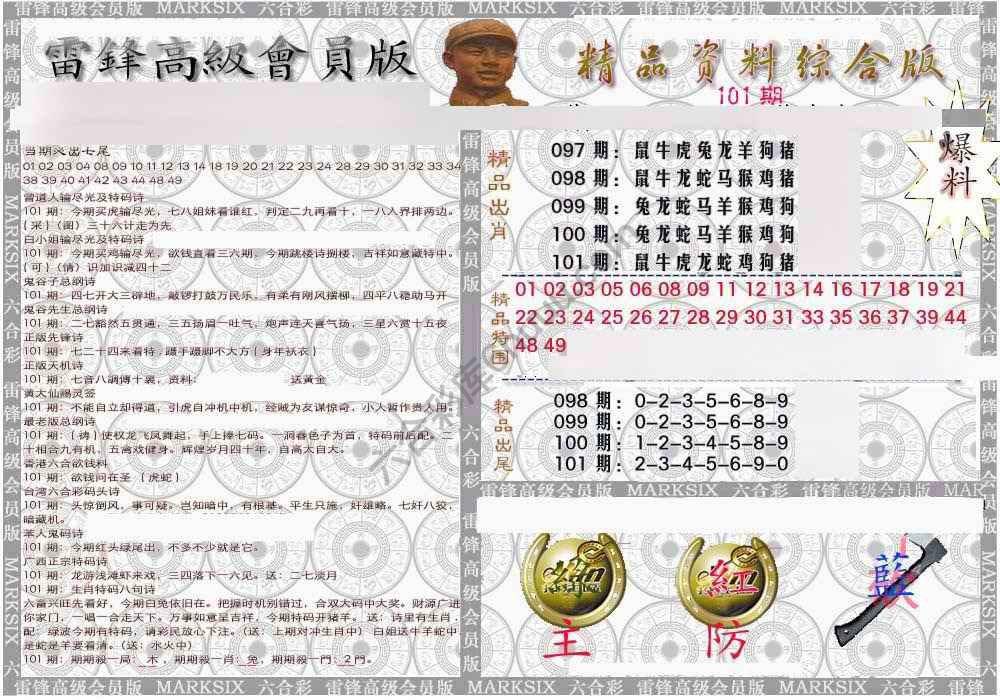 雷鋒高級會員版
精品资料综合版
101期
爆料
当期突出七尾
01 02 03 04 08 09 10 11 12 13 14 18 19 20 21 22 23 24 28 29 30 31 32 33 34
38 39 40 41 42 43 44 48 49
曾道人输尽光及特码诗
101 期：今期买虎输尽光，七八姐妹看谁红，判定二九再看十，一八入界排两边。
{采}（图）三十六计走为先
白小姐输尽光及特码诗
101 期：今期买鸡输尽光，欲钱直看三六期，今期跳楼诗捌楼，吉祥如意藏特中。
{可}（情）识加识减四十二
鬼谷子总纲诗
101 期：四七开大三辟地，敲锣打鼓万民乐，有柔有刚风摆柳，四平八稳动马开
鬼谷先生总纲诗
101 期：二七豁然五贯通，三五扬眉一吐气，炮声连天喜气扬，三星六赏十五夜
正版先锋诗
101 期：七二十四来看特，蹑手蹑脚不大方{身年袄衣}
正版天机诗
101 期：七音八調傳十裏，资料： 送黃金
黄大仙赐灵签
101 期：不能自立却得道，引虎自冲机中机，经贼为友谋惊奇，小人暂作贵人用。
最老版总纲诗
101 期：{俦}使权龙飞风舞起，手上捧七码。一洞春色子为首，特码前后配。二
十相合九有机，五离戏健身。辉煌岁月四十年，自高大自大。
香港六合欲钱料
101 期：欲钱问在圣 {虎蛇}
台湾六合彩码头诗
101 期：头惊倒风，事可疑。岂知暗中，有根基。平生只施，奸雄略。七奸八狡，
暗藏机。
苯人鬼码诗
101 期：今期红头绿尾出，不多不少就是它。
广西正宗特码诗
101 期：龙游浅滩虾来戏，三四落下一六见。送：二七淡月
101 期：生肖特码八句诗
六畜兴旺先看好，今期白兔依旧在。把握时机别错过，合双大码中大奖。财源广进
你家门，一唱一合走天下。万事如意呈吉祥，今期特码开猪羊。 送：诗里有生肖，
配：绿波今期有特码，请彩民放心下注。（送：上期对冲生肖中） 白姐送牛羊蛇中
是蛇是羊要看清。（送：水火中）
101 期：期期殺一局：木，期期殺一肖：兔，期期殺一門：2 門。
精品出肖
097 期：鼠牛虎兔龙羊狗猪
098 期：鼠牛龙蛇马猴鸡猪
099 期：兔龙蛇马羊猴鸡狗
100 期：兔龙蛇马羊猴鸡狗
101 期：鼠牛虎龙蛇鸡狗猪
精品特围
01 02 03 05 06 08 09 11 12 13 14 16 17 18 19 21
22 23 24 25 26 27 28 29 30 31 33 35 36 37 39 44
48 49
精品出尾
098 期：0-2-3-5-6-8-9
099 期：0-2-3-5-6-8-9
100 期：1-2-3-4-5-8-9
101 期：2-3-4-5-6-9-0
雷锋高级会员版 MARKSIX 六合彩
紅
藍
主
防